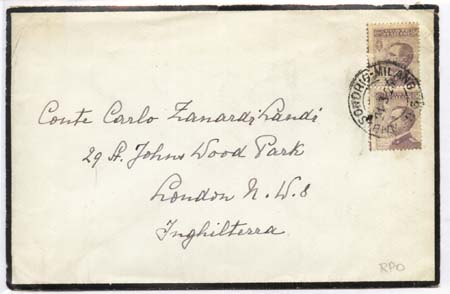 Conte Carlo Zanardi Landi
29 St. Johns Wood Park
London N.W.8
Inghilterra
RPO